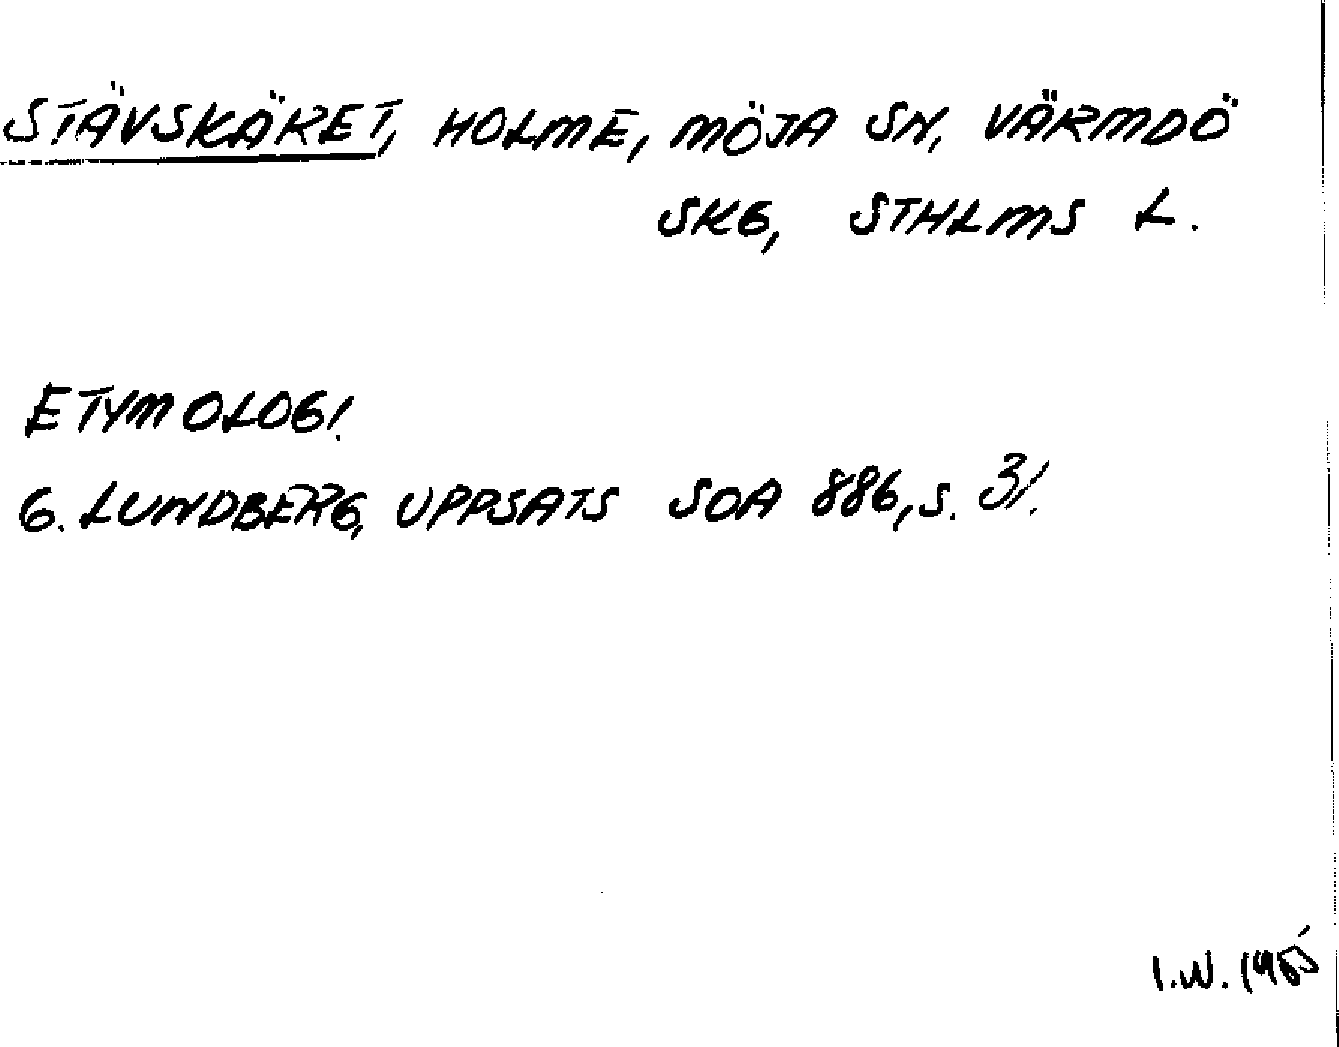 STÄVSKÄRET, HOLME, MÖJA SN, VÄRMDÖ
SKG, STHLMS L.
ETYMOLOGI.
G. LUNDBERG, UPPSATS SOA 886, S. 31.
I.W. 1985